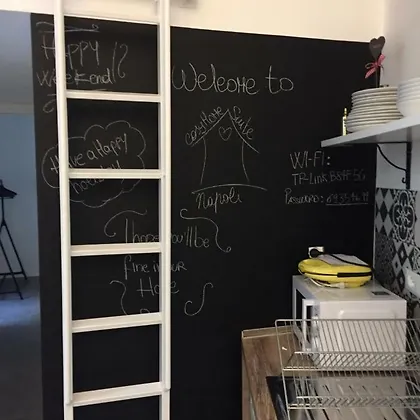 Happy
Weekend!!
Welcome to
cozyHome Suite
Napoli
Have a Happy
holiday!
WI-FI:
TP-Link B8FF5G
Password:
Thope you'll be
fine in our
Home